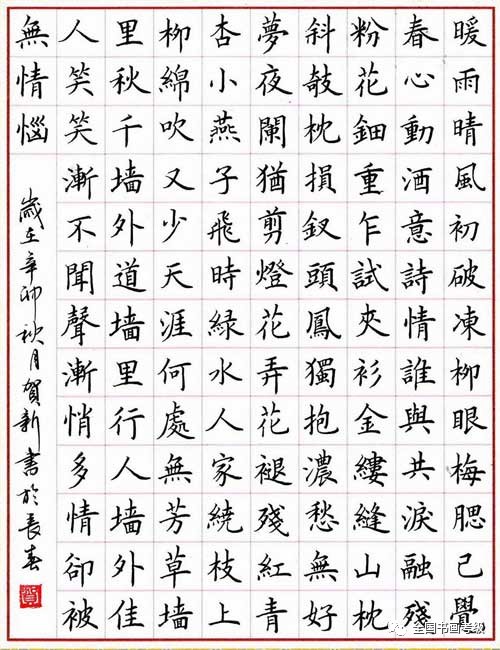 暖雨晴風初破凍柳眼梅腮已覺
春心動酒意詩情誰與共淚融殘
粉花鈿重乍試夾衫金縷縫山枕
斜攲枕損釵頭鳳獨抱濃愁無好
夢夜闌猶剪燈花弄花褪殘紅青
杏小燕子飛時綠水人家繞枝上
柳綿吹又少天涯何處無芳草墙
里秋千墙外道墙里行人墙外佳
人笑笑漸不聞聲漸悄多情卻被
無情惱
歲在辛卯秋月賀新書於長春
全国书画考级